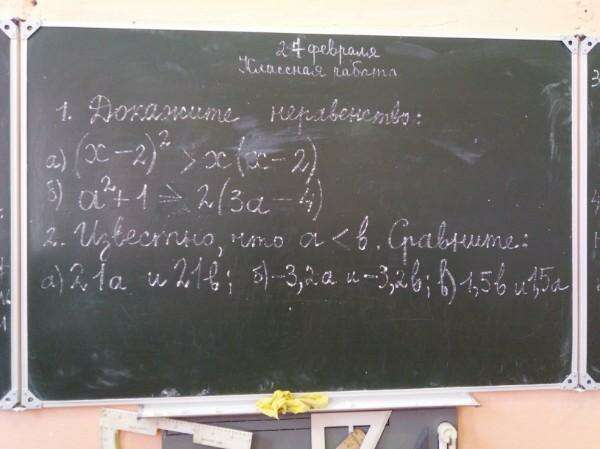 27 февраля
Классная работа
1. Докажите неравенство:
а) (x-2)² > x(x-2)
б) a²+1 ⩾ 2(3a-4)
2. Известно, что a < b. Сравните:
а) 21a и 21b; б) -3,2a и -3,2b; в) 1,5b и 1,5a